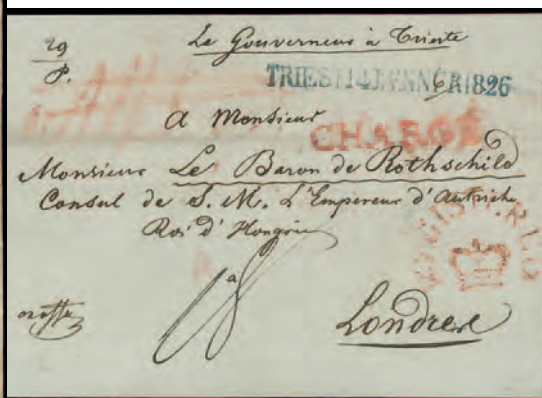 29
P.
Le Gouverneur à Trieste
TRIEST 14 JENNER 1826
A Monsieur
CHARGÉ
Monsieur Le Baron de Rothschild
Consul de S. M. L'Empereur d'Autriche
Roi d'Hongrie
REGISTERED
Londres